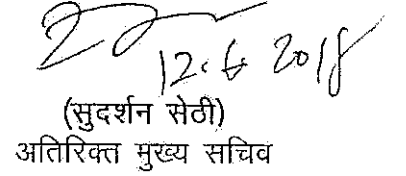 12.6.2018
(सुदर्शन सेठी)
अतिरिक्त मुख्य सचिव